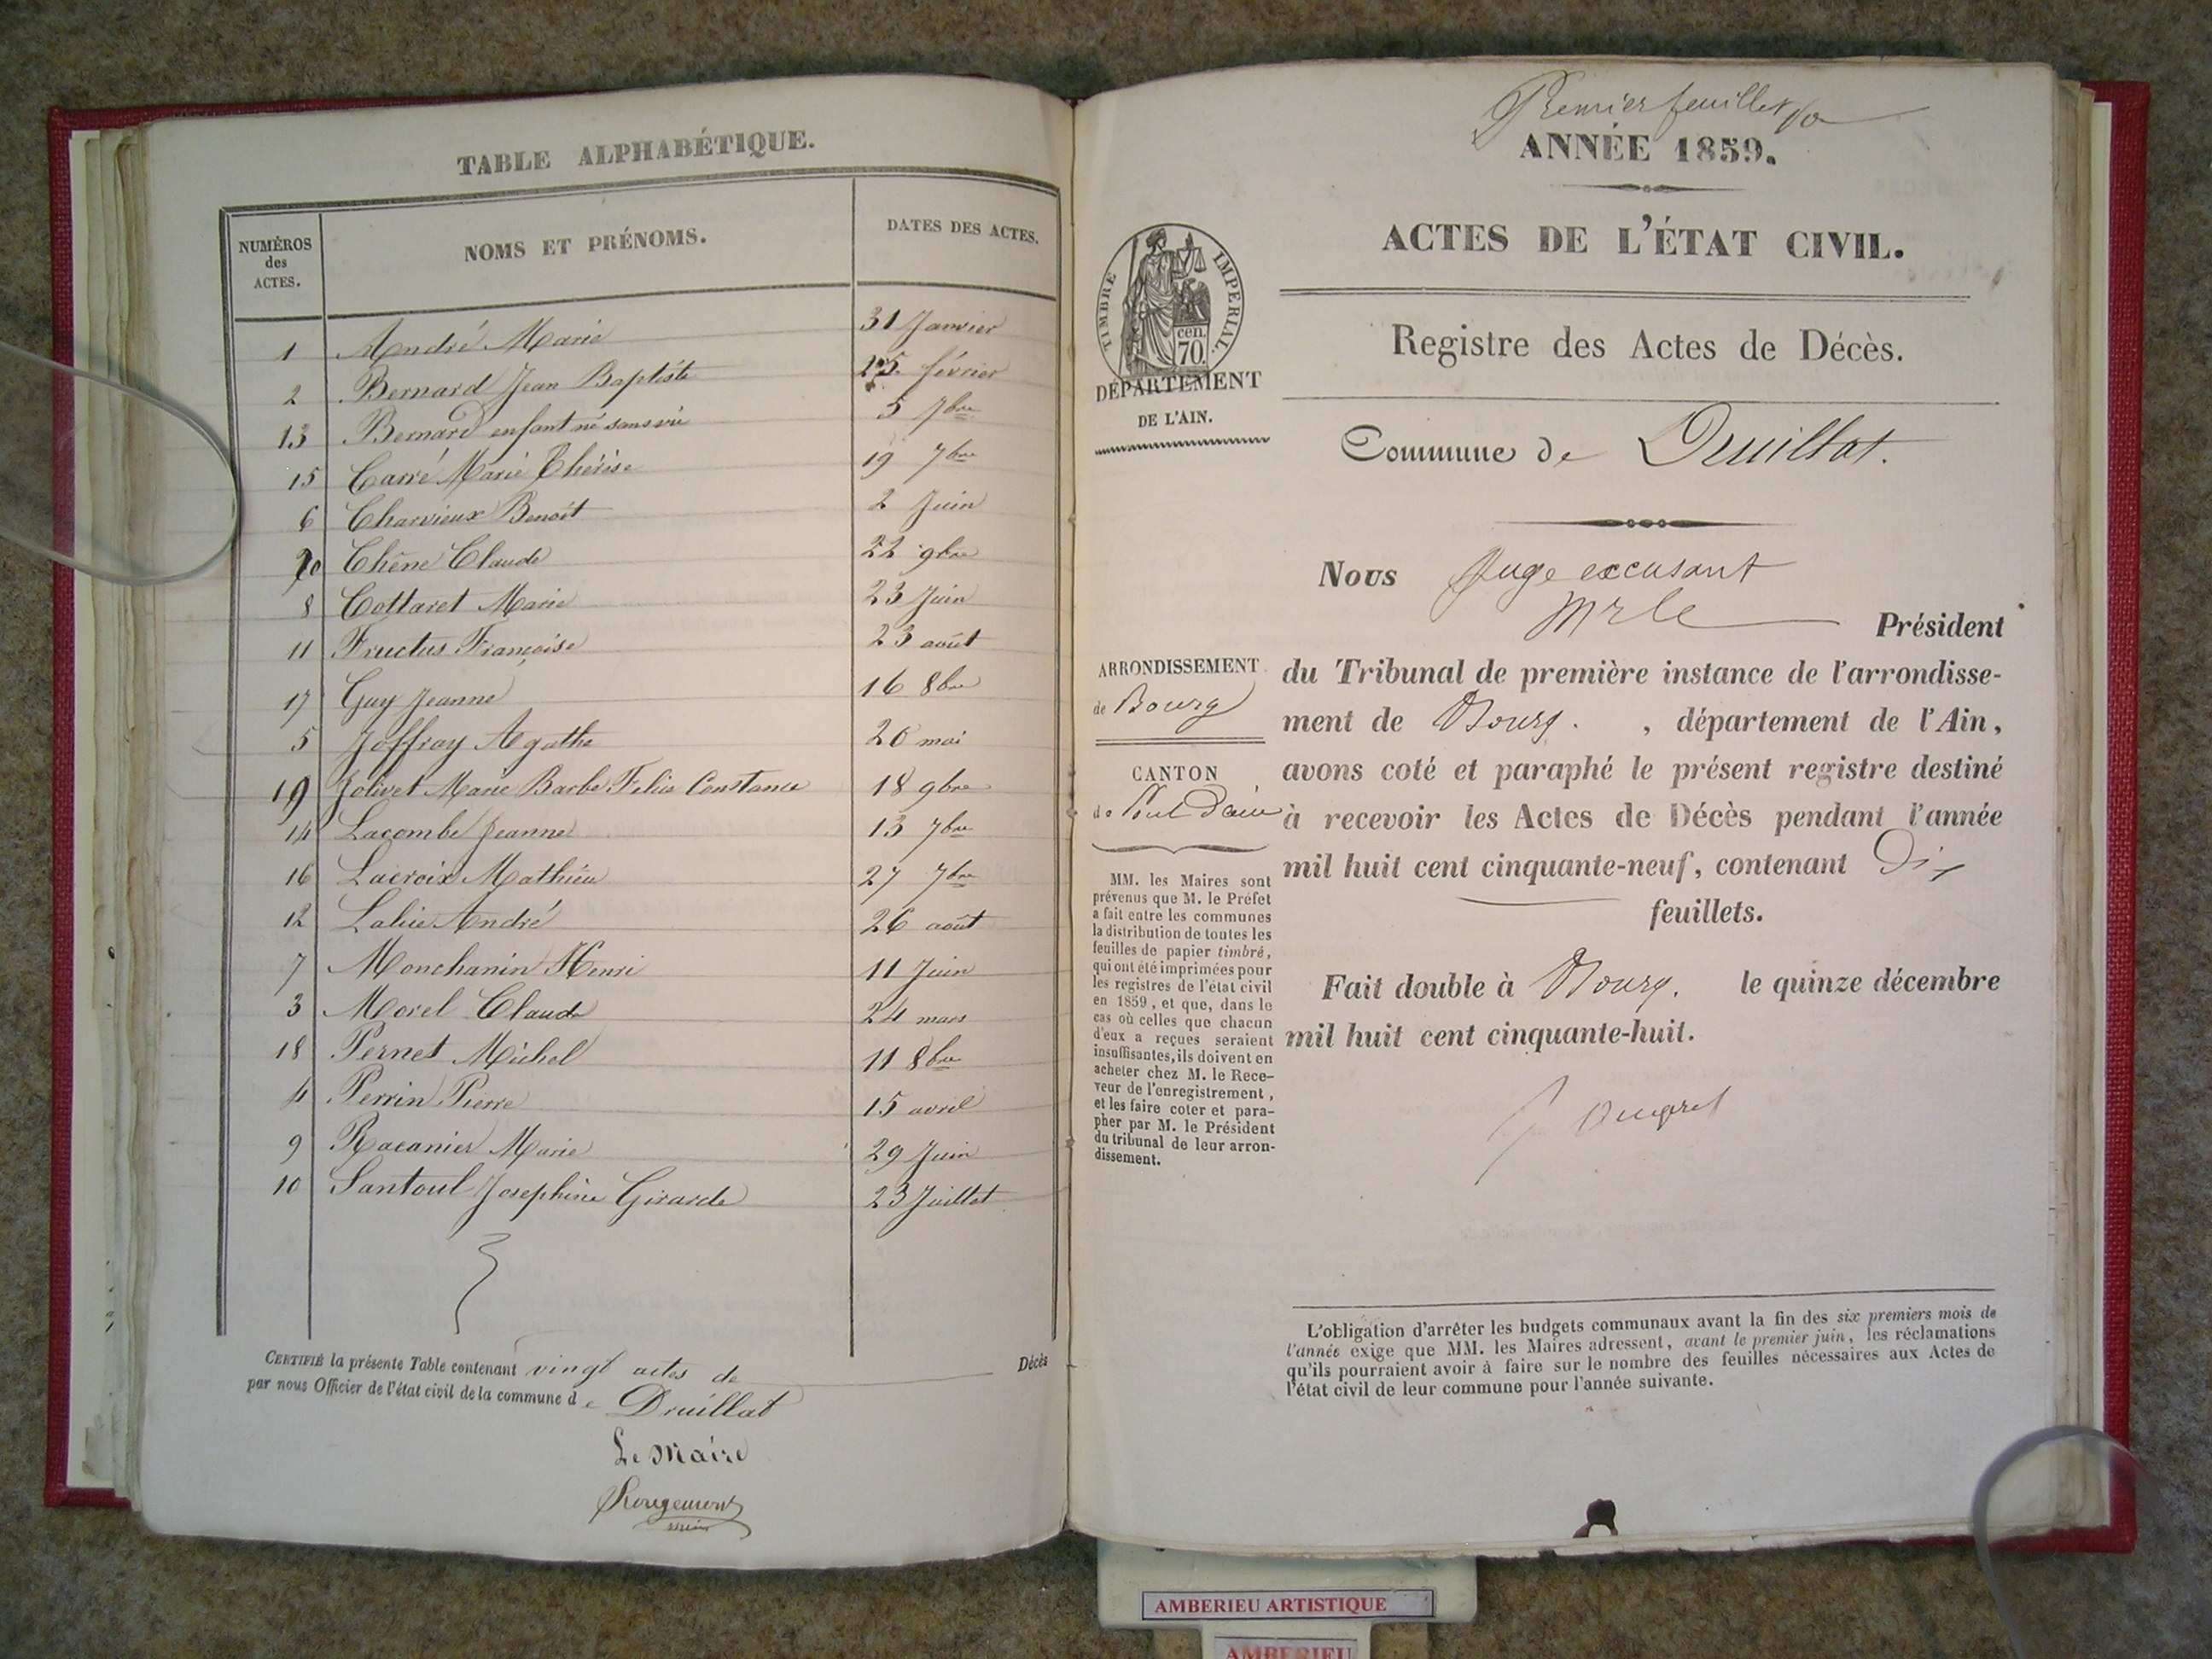 TABLE ALPHABÉTIQUE.
NUMÉROS des ACTES. NOMS ET PRÉNOMS. DATES DES ACTES.
1 André Marie 31 Janvier
2 Bernard Jean Baptiste février
13 Bernard enfant né sans vie 5 7bre
15 Carré Marie Thérèse 19 7bre
6 Charvieux Benoit 2 Juin
20 Chêne Claude 22 9bre
8 Cottaret Marie 23 Juin
11 Fructus Françoise 23 août
17 Guy Jeanne 16 8bre
5 Joffray Agathe 20 mai
19 Jolivet Marie Barbe Constance 18 9bre
14 Lacombe Jeanne 13 7bre
16 Lacroix Mathieu 27 7bre
12 André 26 août
7 Monchanin Henri 11 Juin
3 Morel Claude 24 mars
18 Pernet Michel 11 8bre
4 Perrin Pierre 15 avril
9 Racanier Marie 29 Juin
10 Santoul Josephine Girarde 23 Juillet
CERTIFIÉ la présente Table contenant vingt actes de Décès
par nous Officier de l'état civil de la commune de Druillat
Le Maire
Rougemont
Premier feuillet
ANNÉE 1859.
ACTES DE L'ÉTAT CIVIL.
TIMBRE IMPERIAL.
cen.
70.
DÉPARTEMENT
DE L'AIN.
Registre des Actes de Décès.
Commune de Druillat.
Nous Juge excusant
Mr le Président
du Tribunal de première instance de l'arrondisse-
ment de Bourg. , département de l'Ain,
avons coté et paraphé le présent registre destiné
à recevoir les Actes de Décès pendant l'année
mil huit cent cinquante-neuf, contenant Dix
feuillets.
Fait double à Bourg. le quinze décembre
mil huit cent cinquante-huit.
ARRONDISSEMENT
de Bourg
CANTON
de Pont d'ain
MM. les Maires sont
prévenus que M. le Préfet
a fait entre les communes
la distribution de toutes les
feuilles de papier timbré,
qui ont été imprimées pour
les registres de l'état civil
en 1859, et que, dans le
cas où celles que chacun
d'eux a reçues seraient
insuffisantes, ils doivent en
acheter chez M. le Rece-
veur de l'enregistrement,
et les faire coter et para-
pher par M. le Président
du tribunal de leur arron-
dissement.
L'obligation d'arrêter les budgets communaux avant la fin des six premiers mois de
l'année exige que MM. les Maires adressent, avant le premier juin, les réclamations
qu'ils pourraient avoir à faire sur le nombre des feuilles nécessaires aux Actes de
l'état civil de leur commune pour l'année suivante.
AMBERIEU ARTISTIQUE
AMBERIEU